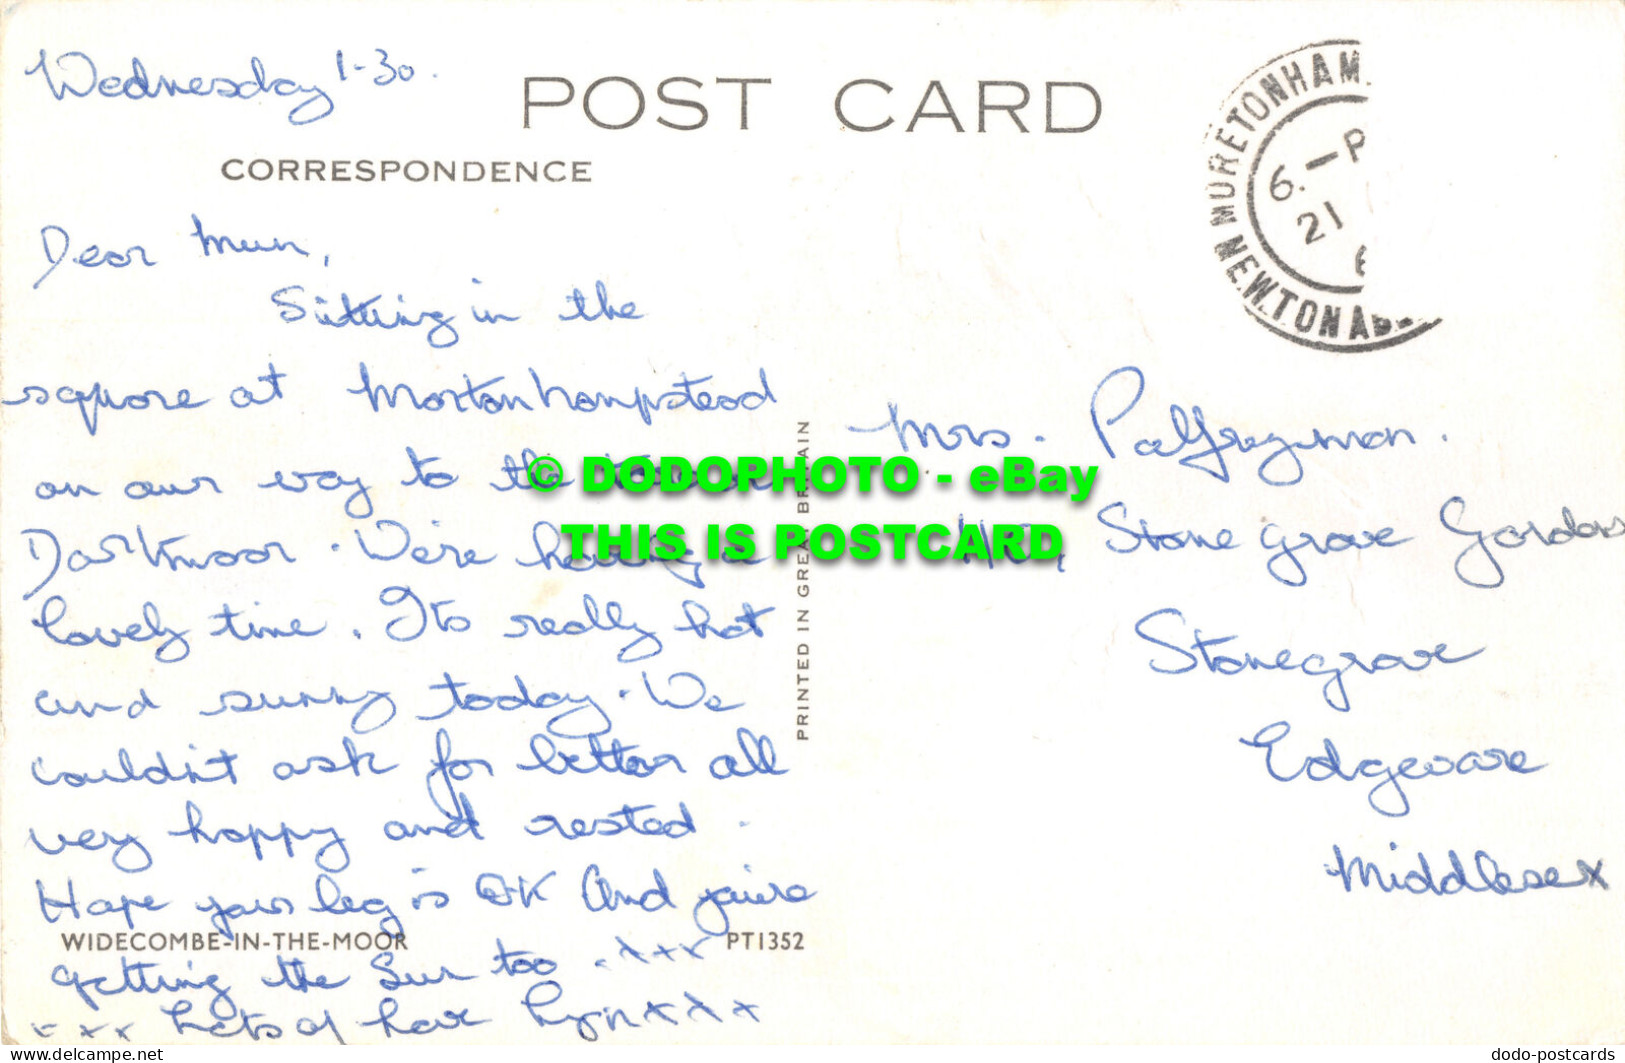 Wednesday 1-30.
POST CARD
CORRESPONDENCE
Dear Mum,
Sitting in the
square at Mortonhampstead
on our way to the
Dartmoor. We're having a
lovely time. Its really hot
and sunny today. We
couldn't ask for better all
very happy and rested.
Hope your leg is OK And you're
WIDECOMBE-IN-THE-MOOR
PT1352
getting the Sun too. xxx
xxx Lots of love Lyn xxxx
PRINTED IN GREAT BRITAIN
MORETONHAM
6.-P
21
6
NEWTON AB
Mrs. Palfreyman.
Stonegrove Gardens
Stonegrove
Edgeware
Middlesex
© DODOPHOTO - eBay
THIS IS POSTCARD
www.delcampe.net
dodo-postcards